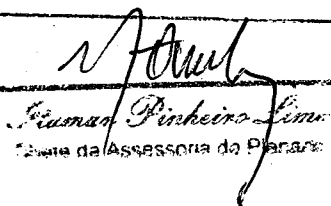 Itamar Pinheiro Lima
Chefe da Assessoria do Plenário